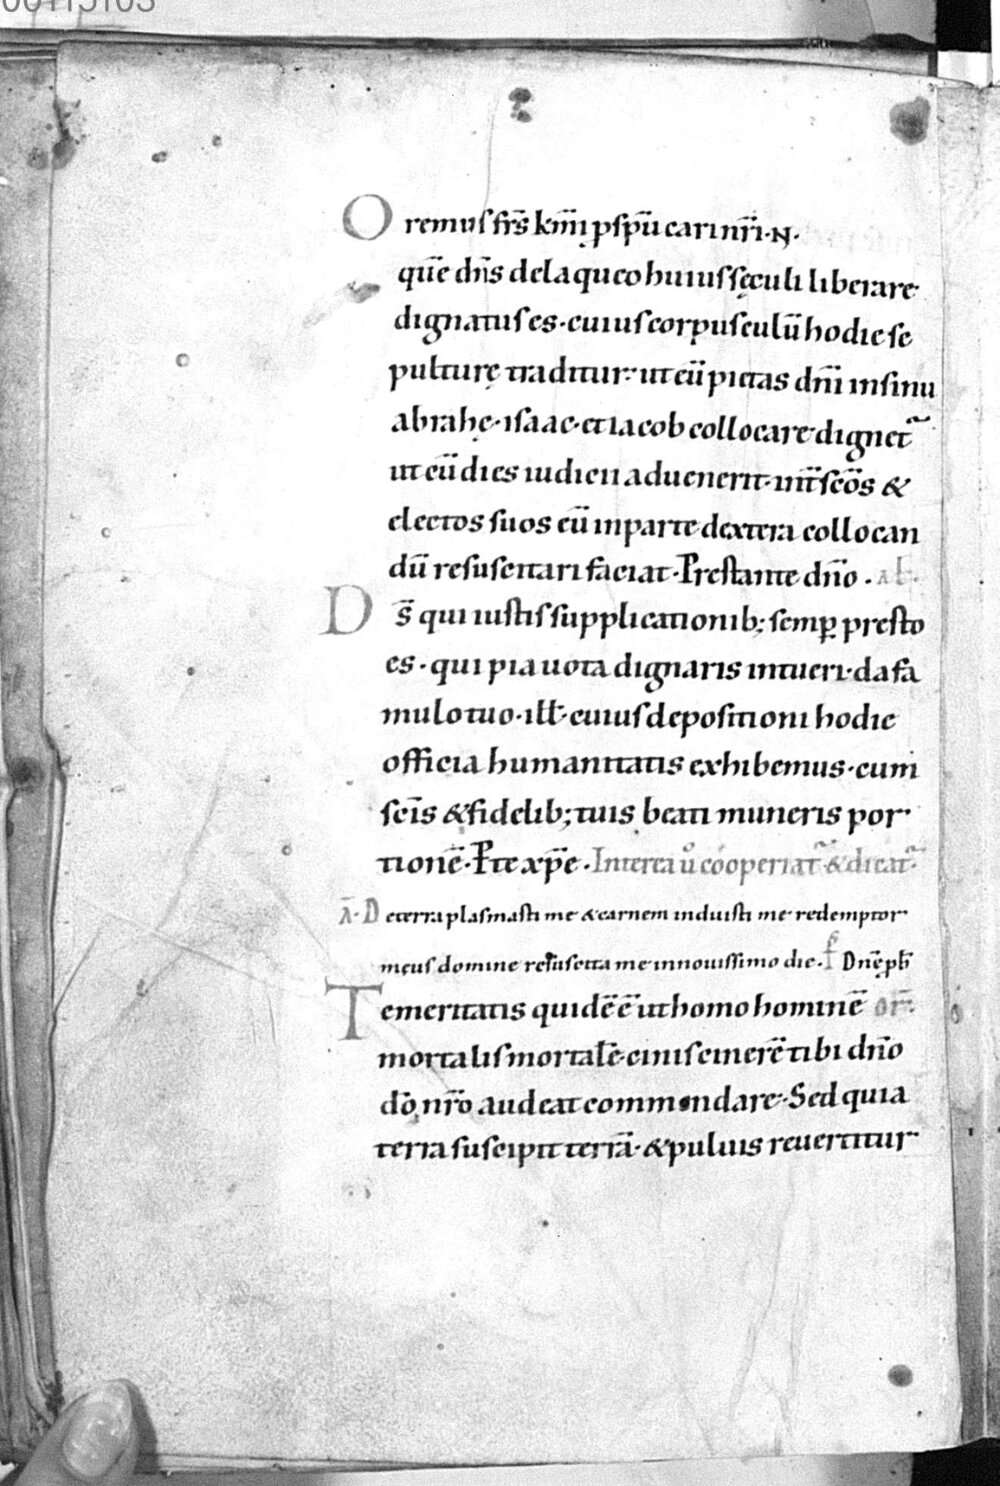 00115103
Oremus fr̄s km̄i ꝓ sp̄u cari nr̄i · N ·
quē dn̄s de laqueo huius sęculi liberare
dignatus es · cuius corpusculū hodie se
pulturę traditur · ut eū pietas dn̄i in sinu
abrahę · isaac · et iacob collocare dignet᷑
ut cū dies iudicii aduenerit · int̄ sc̄os &
electos suos eū in parte dextera collocan
dū resuscitari faciat · Prestante dn̄o . al̄ .
Ds̄ qui iustis supplicationib; semꝑ presto
es · qui pia uota dignaris intueri · da fa
mulo tuo · ill̄ · cuius depositioni hodie
officia humanitatis exhibemus · cum
sc̄is & fidelib; tuis beati muneris por
tionē · P̄te xp̄e . Interea u̾ cooperiat᷑ & dicat᷑
Ā · De terra plasmasti me & carnem induisti me redemptor
meus domine resuscita me in nouissimo die . Ps̄ Dn̄e ꝓb̄
Temeritatis quidē ē ut homo hominē or̄ .
mortalis mortalē · cinis cinerē tibi dn̄o
dō nr̄o audeat commendare · Sed quia
terra suscipit terrā · & puluis reuertitur